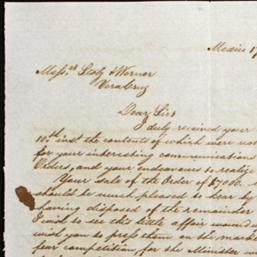 Mexico 17
Messrs. Stolz & Werner
Vera Cruz
Dear Sirs
I duly received your
10th inst. the contents of which were not
for your interesting communications
Orders, and your endeavours to realize
Your sale of the Order of $7000.
should be much pleased to hear by
having disposed of the remainder
I wish to see the little affair wound
wish you to press them on the market
fear competition, for the Minister